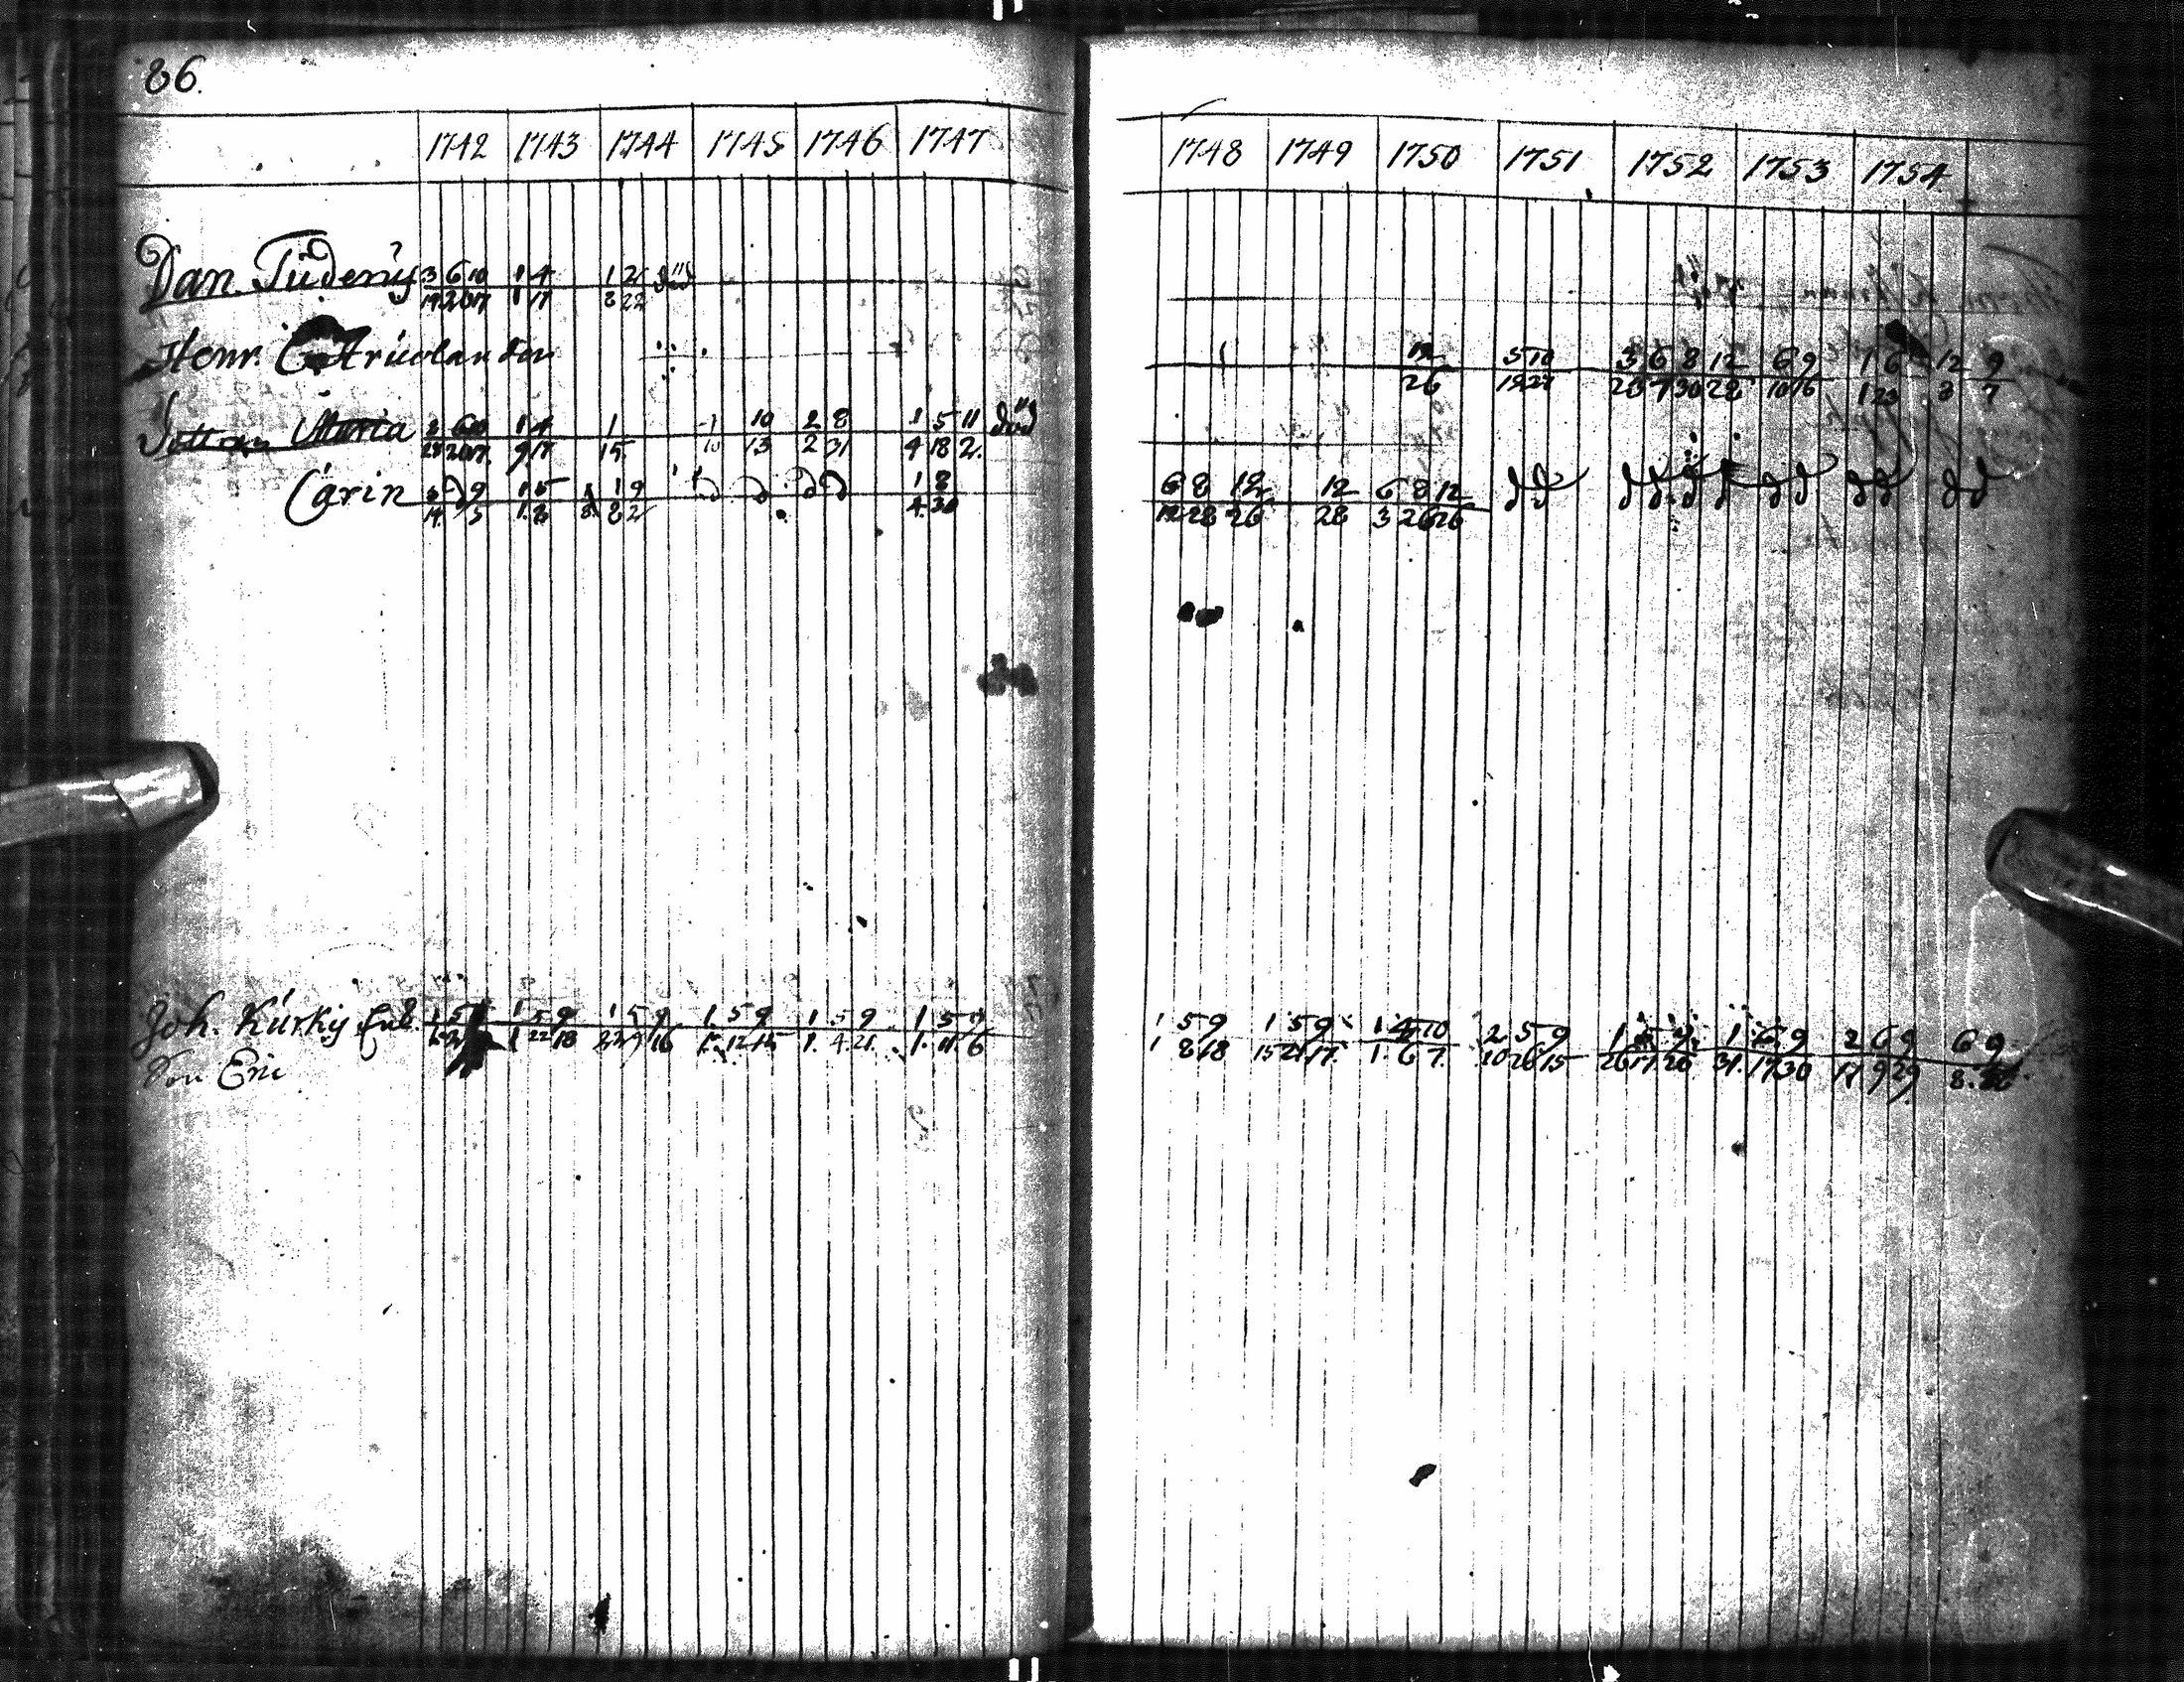 86.
1742 1743 1744 1745 1746 1747 1748 1749 1750 1751 1752 1753 1754
Dan. Tüdenüs 3 6 10 1 4 1 2 död
19 20 17 1 17 8 22
Henr. 12 5 10 3 6 8 12 6 9 1 6 12 9
26 19 27 7 30 28 10 16 1 23 3 7
Maria 1 4 1 1 10 2 8 1 5 11 död
9 17 15 10 13 2 31 4 18 2.
Carin 9 1 5 1 9 d d d d 1 8 6 8 12 12 6 8 12 d d d d d d d d d d d d
14 5 1. 8 8 2 4. 30 19 28 26 28 3 26 26
Joh. Kürky Enb. 1 5 1 5 9 1 5 9 1. 5 9 1 5 9 1 5 9 1 5 9 1 5 9 1 4 10 2 5 9 1 5 9 1 6 9 2 6 9 6 9
1 22 18 22 9 16 1. 12 15 1. 4. 21. 1. 11. 6 1 8 18 15 21 17. 1. 6 7. 20 26 15 26 17 20 31. 17 30 17 9 29 8.
Son Eric